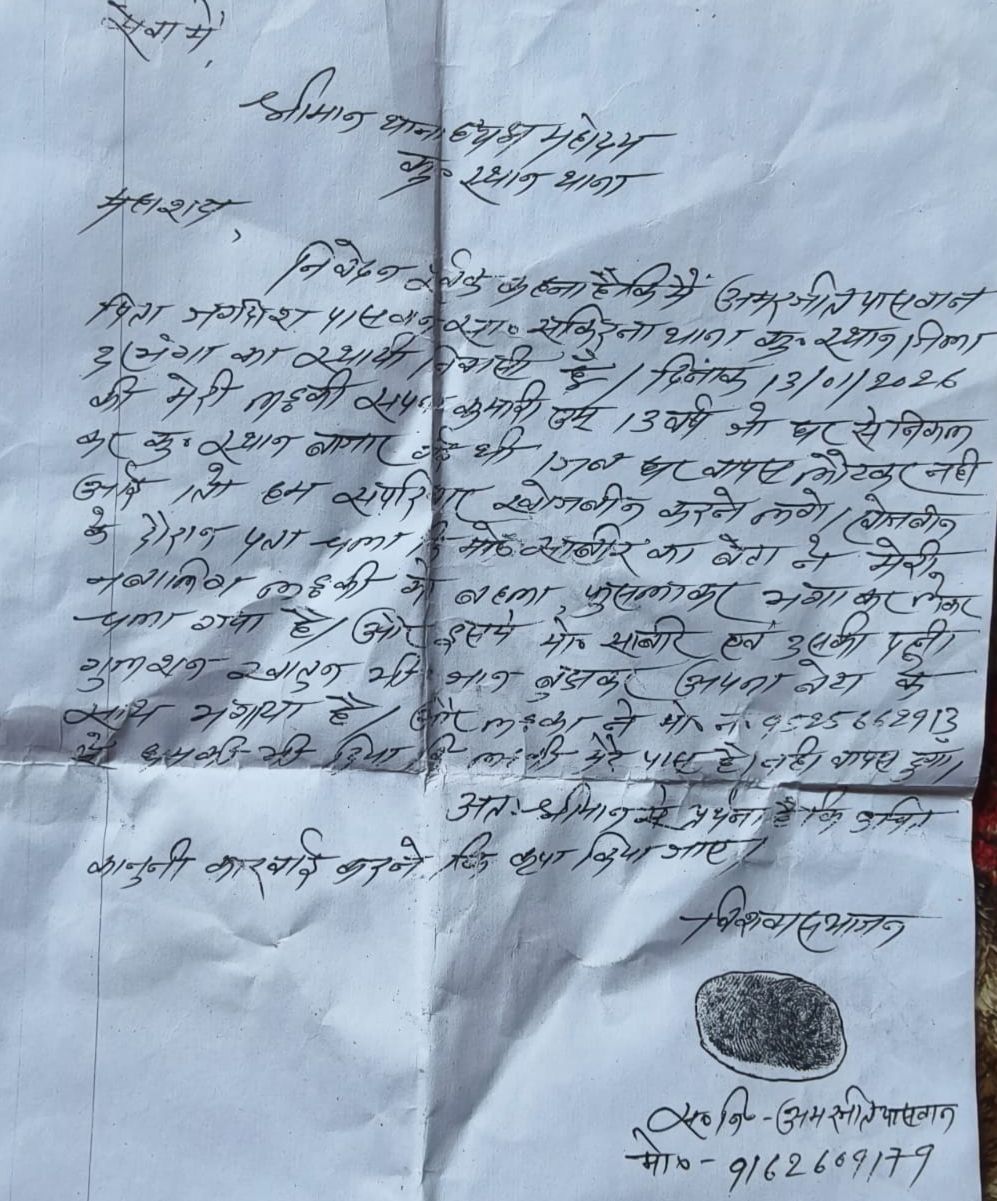 सेवा में,
श्रीमान थानाध्यक्ष महोदय
कु० स्थान थाना
महाशय,
निवेदन पूर्वक कहना है कि मैं अमरजीत पासवान
पिता जगदिश पासवान सा० थाना कु० स्थान जिला
दरभंगा का स्थायी निवासी हूँ। दिनांक 13/01/2026
को मेरी लड़की कुमारी उम्र 13 वर्ष जो घर से निकल
कर कु० स्थान बाजार गई थी। जब घर वापस लौटकर नही
आई। तो हम सपरिवार खोजबीन करने लगे। खोजबीन
के दौरान पता चला कि मो० साबीर का बेटा ने मेरी
नबालिग लड़की को बहला फुसलाकर भगा कर लेकर
चला गया है। और इसमे मो० साबीर एवं उसकी पत्नी
गुलशन खातुन भी जान बुझकर अपना बेटा के
साथ भगाया है। और लड़का ने मो० न० 9525662913
से धमकी भी दिया कि लड़की मेरे पास है। नही वापस दुंगा।
अतः श्रीमान से प्रर्थना है कि उचित
कानुनी कारवाई करने कि कृपा किया जाए।
विश्वासभाजन
अमरजीत पासवान
मो० - 9162609179